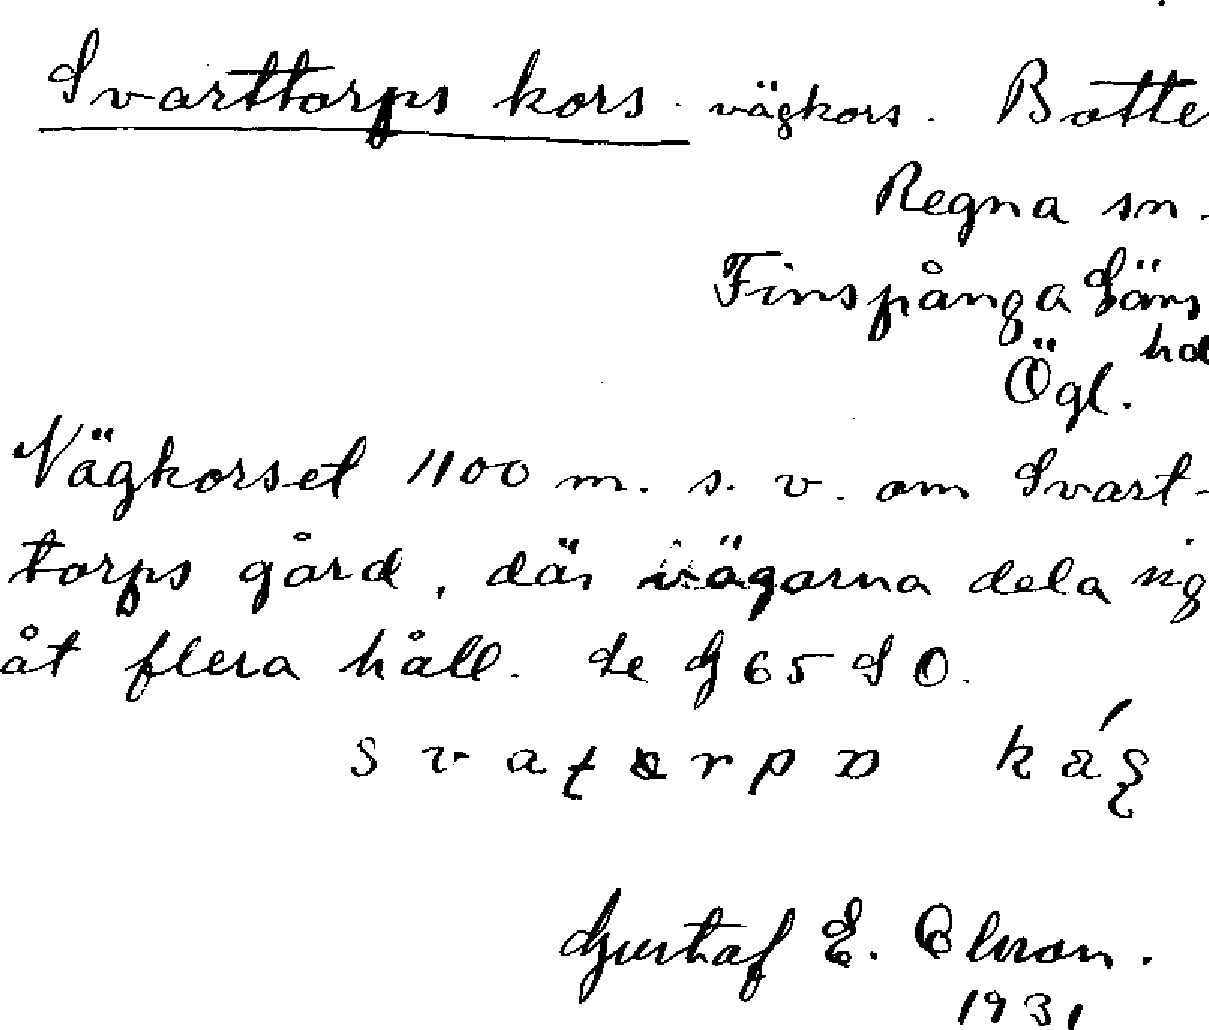 Svarttorps kors. vägkors. Botte
Regna sn.
Finspånga Läns
hd
Ögl.
Vägkorset 1100 m. s. v. om Svart-
torps gård, där vägarna dela sig
åt flera håll. Se G 65 S O.
Gustaf E.
1931